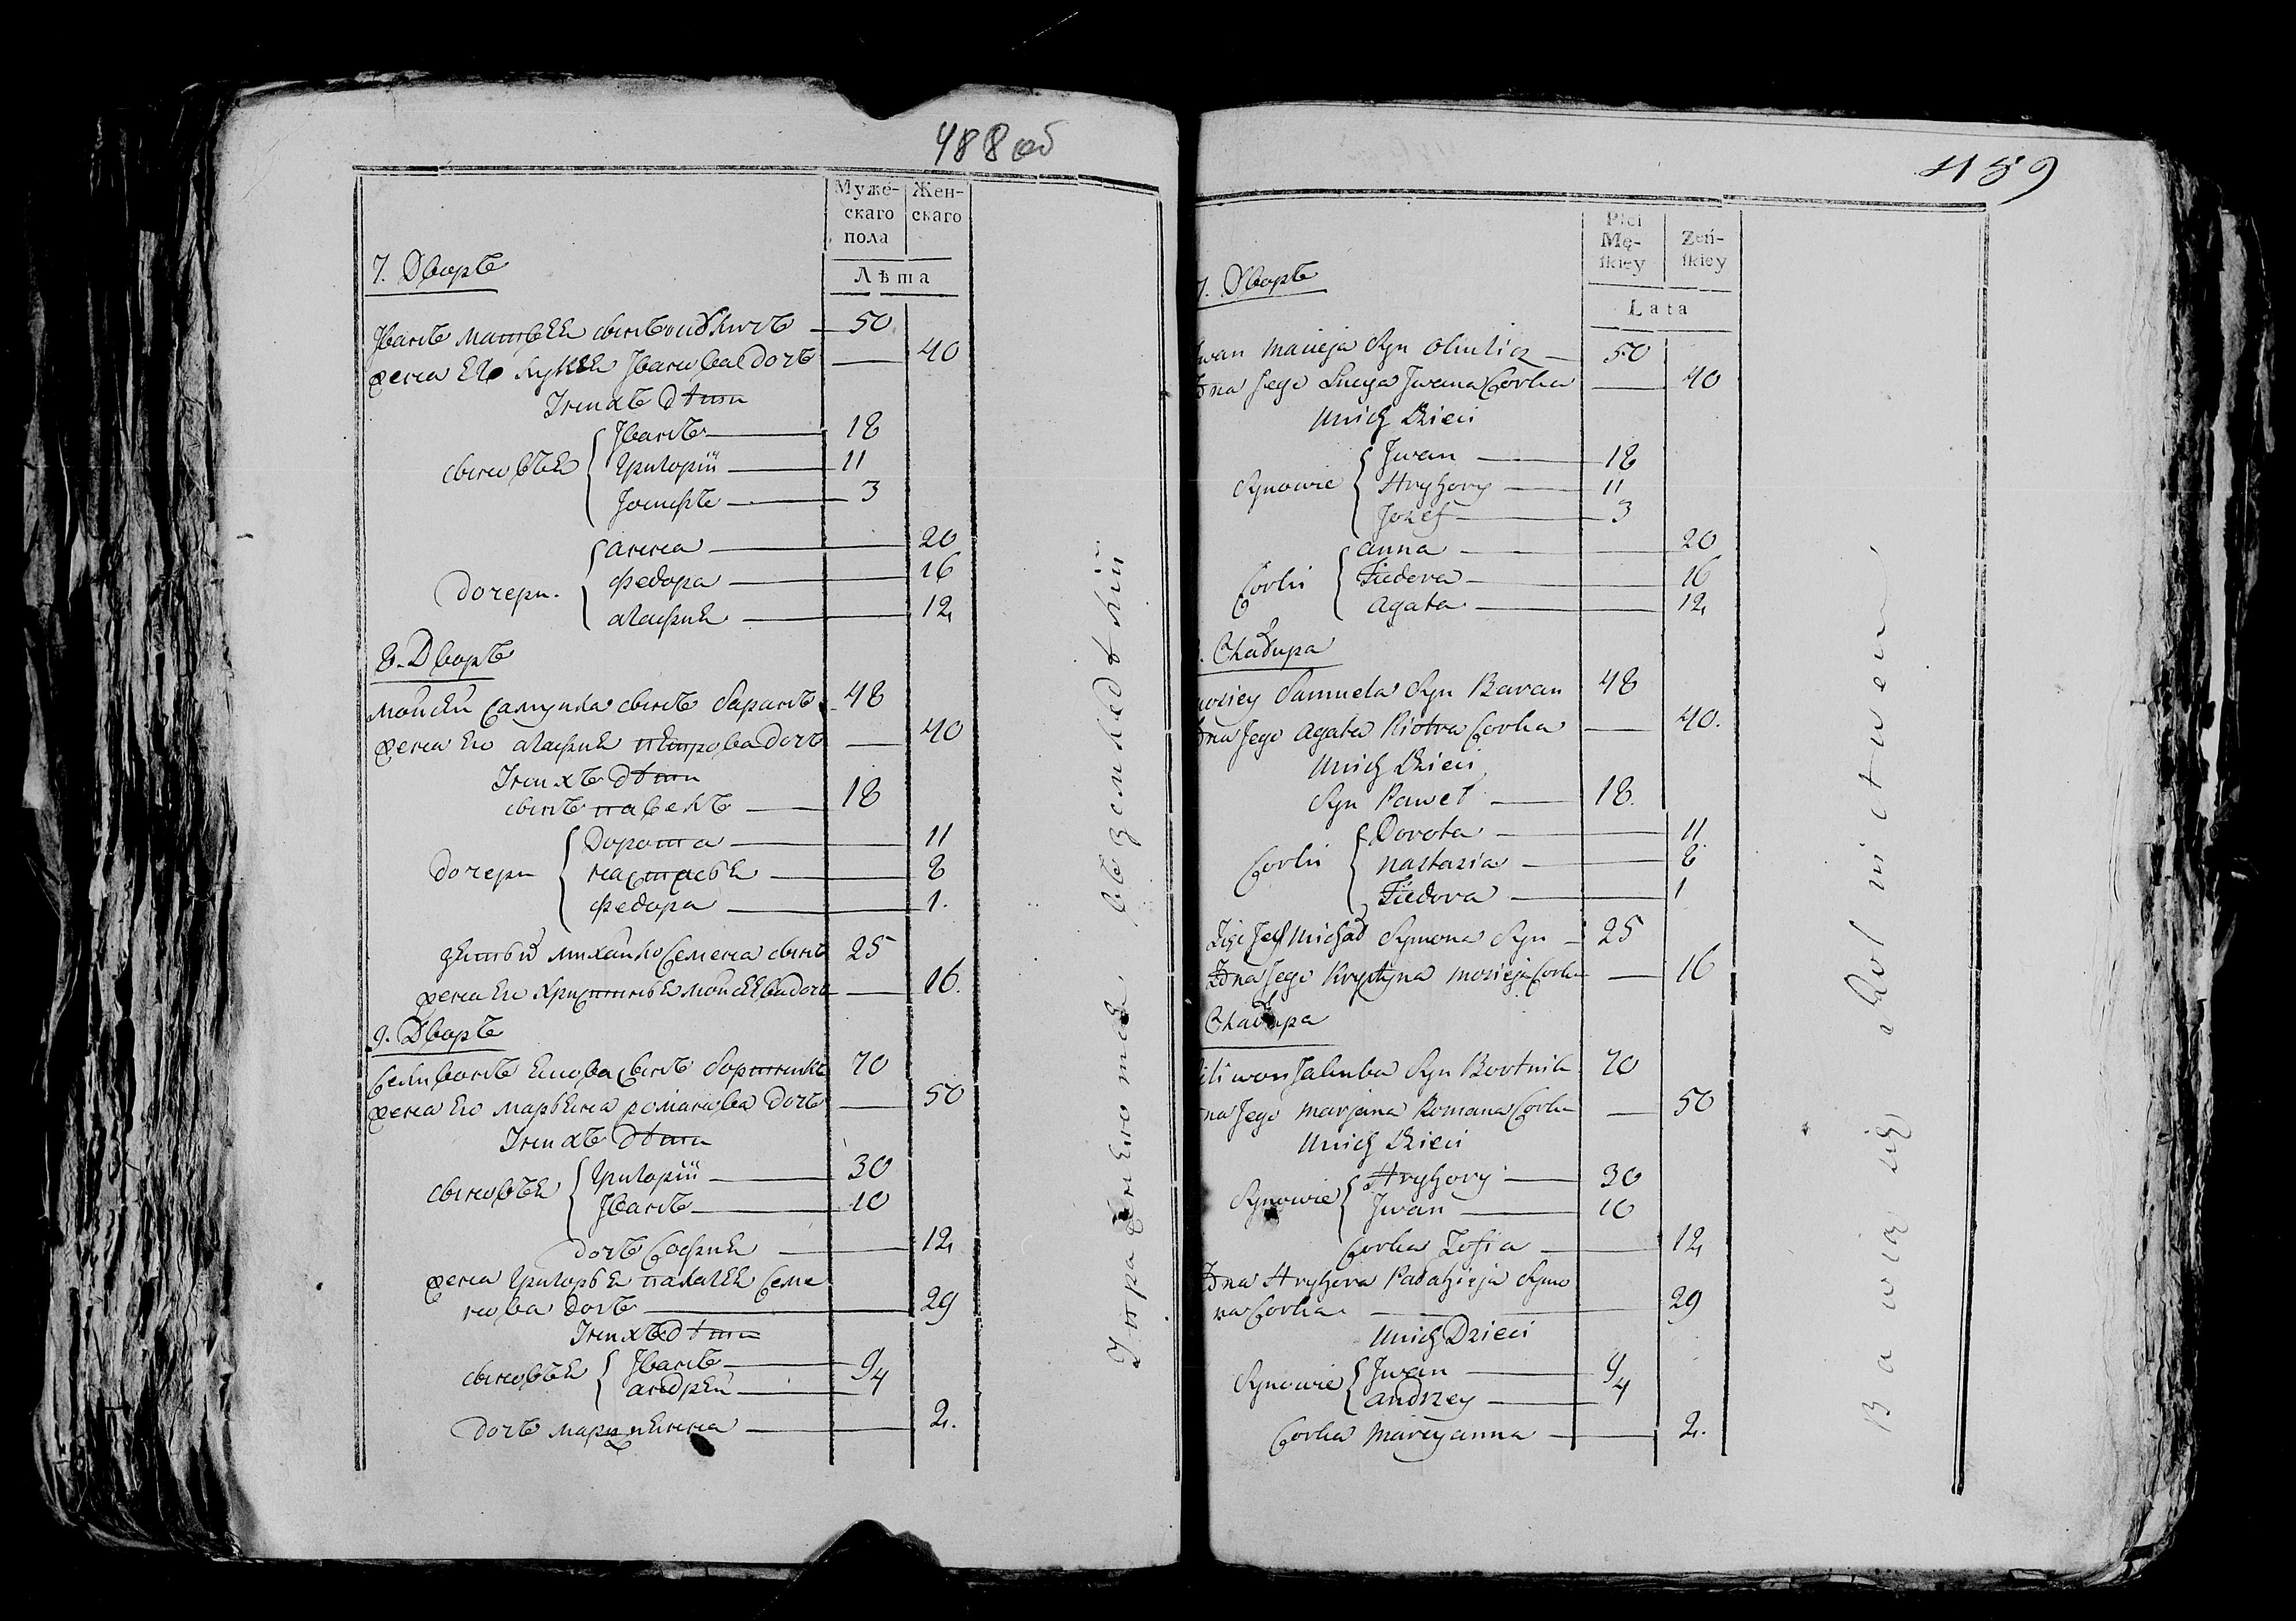 488 об
Муже-
скаго
пола
Жен-
скаго
Лѣта
7. Дворъ
Iванъ матвея сынъ олѣхичъ — 50
жена его луцея Iванова дочъ — 40
У них дѣти
сыновъя
Iванъ — 18
григорiй — 11
Iосифъ — 3
дочери.
анна — 20
федора — 16
агафия — 12
8. Дворъ
мойсей самуила сынъ баранъ — 48
жена его агафия петрова дочъ — 40
У нихъ дѣти
сынъ павелъ — 18
дочери
дорота — 11
настасья — 8
федора — 1.
зятъ ей михайло семена сынъ 25
жена его христинья мойсеева дочъ — 16.
9. Дворъ
селивонъ якова сынъ бортникъ 70
жена его марьяна романова дочъ — 50
У нихъ дѣти
сыновъя
григорiй — 30
Iванъ — 10
дочъ софия — 12
жена григорья палагея семе
нова дочъ — 29
У нихъ дѣти
сыновъя
Iванъ — 9
андрей — 4
дочъ марцианна — 2.
Упражняются въ земледѣлии
489
Płci
Mę-
ſkiey
Żeń-
ſkiey
Lata
7. Дворъ
Iwan Macieja Syn Olinicz — 50
Żona Jego Lucya Jwana Corka — 40
Unich Dzieci
Synowie
Jwan — 18
Hryhory — 11
Jozef — 3
Corki
Anna — 20
Fiedora — 16
Agata — 12
Chałupa
Mosiey Samuela Syn Baran 48
Żona Jego Agata Piotra Corka — 40.
Unich Dzieci
Syn Paweł — 18.
Corki
Dorota — 11
Nastazia — 8
Fiedora — 1
Zięć Jeg Michał Symona Syn — 25
Żona Jego Krystyna Mosieja Corka — 16
Chałupa
Siliwon Jakuba Syn Bortnik 70
Żona Jego Marjana Romana Corka — 50
Unich Dzieci
Synowie
Hryhory — 30
Jwan — 10
Corka Zofia — 12
Żona Hryhora Pałahieja Symo
na Corka — 29
Unich Dzieci
Synowie
Jwan — 9
Andrzey — 4
Corka Maryanna — 2.
Bawią się Rolnictwem